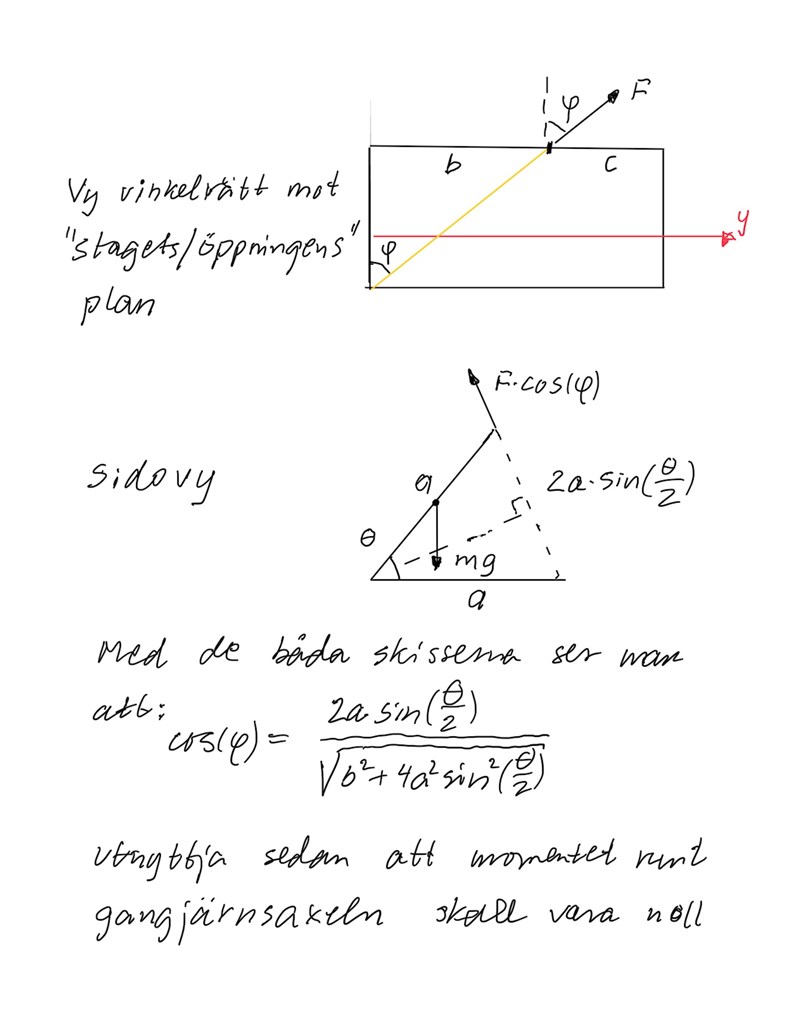 φ
F
b
c
Vy vinkelrätt mot
y
"stagets/öppningens"
φ
plan
F·cos(φ)
sidovy
a
2a·sin(θ/2)
θ
mg
a
Med de båda skisserna ser man
att:
cos(φ) = 2a sin(θ/2) / √(b² + 4a² sin²(θ/2))
utnyttja sedan att momentet runt
gångjärnsaxeln skall vara noll